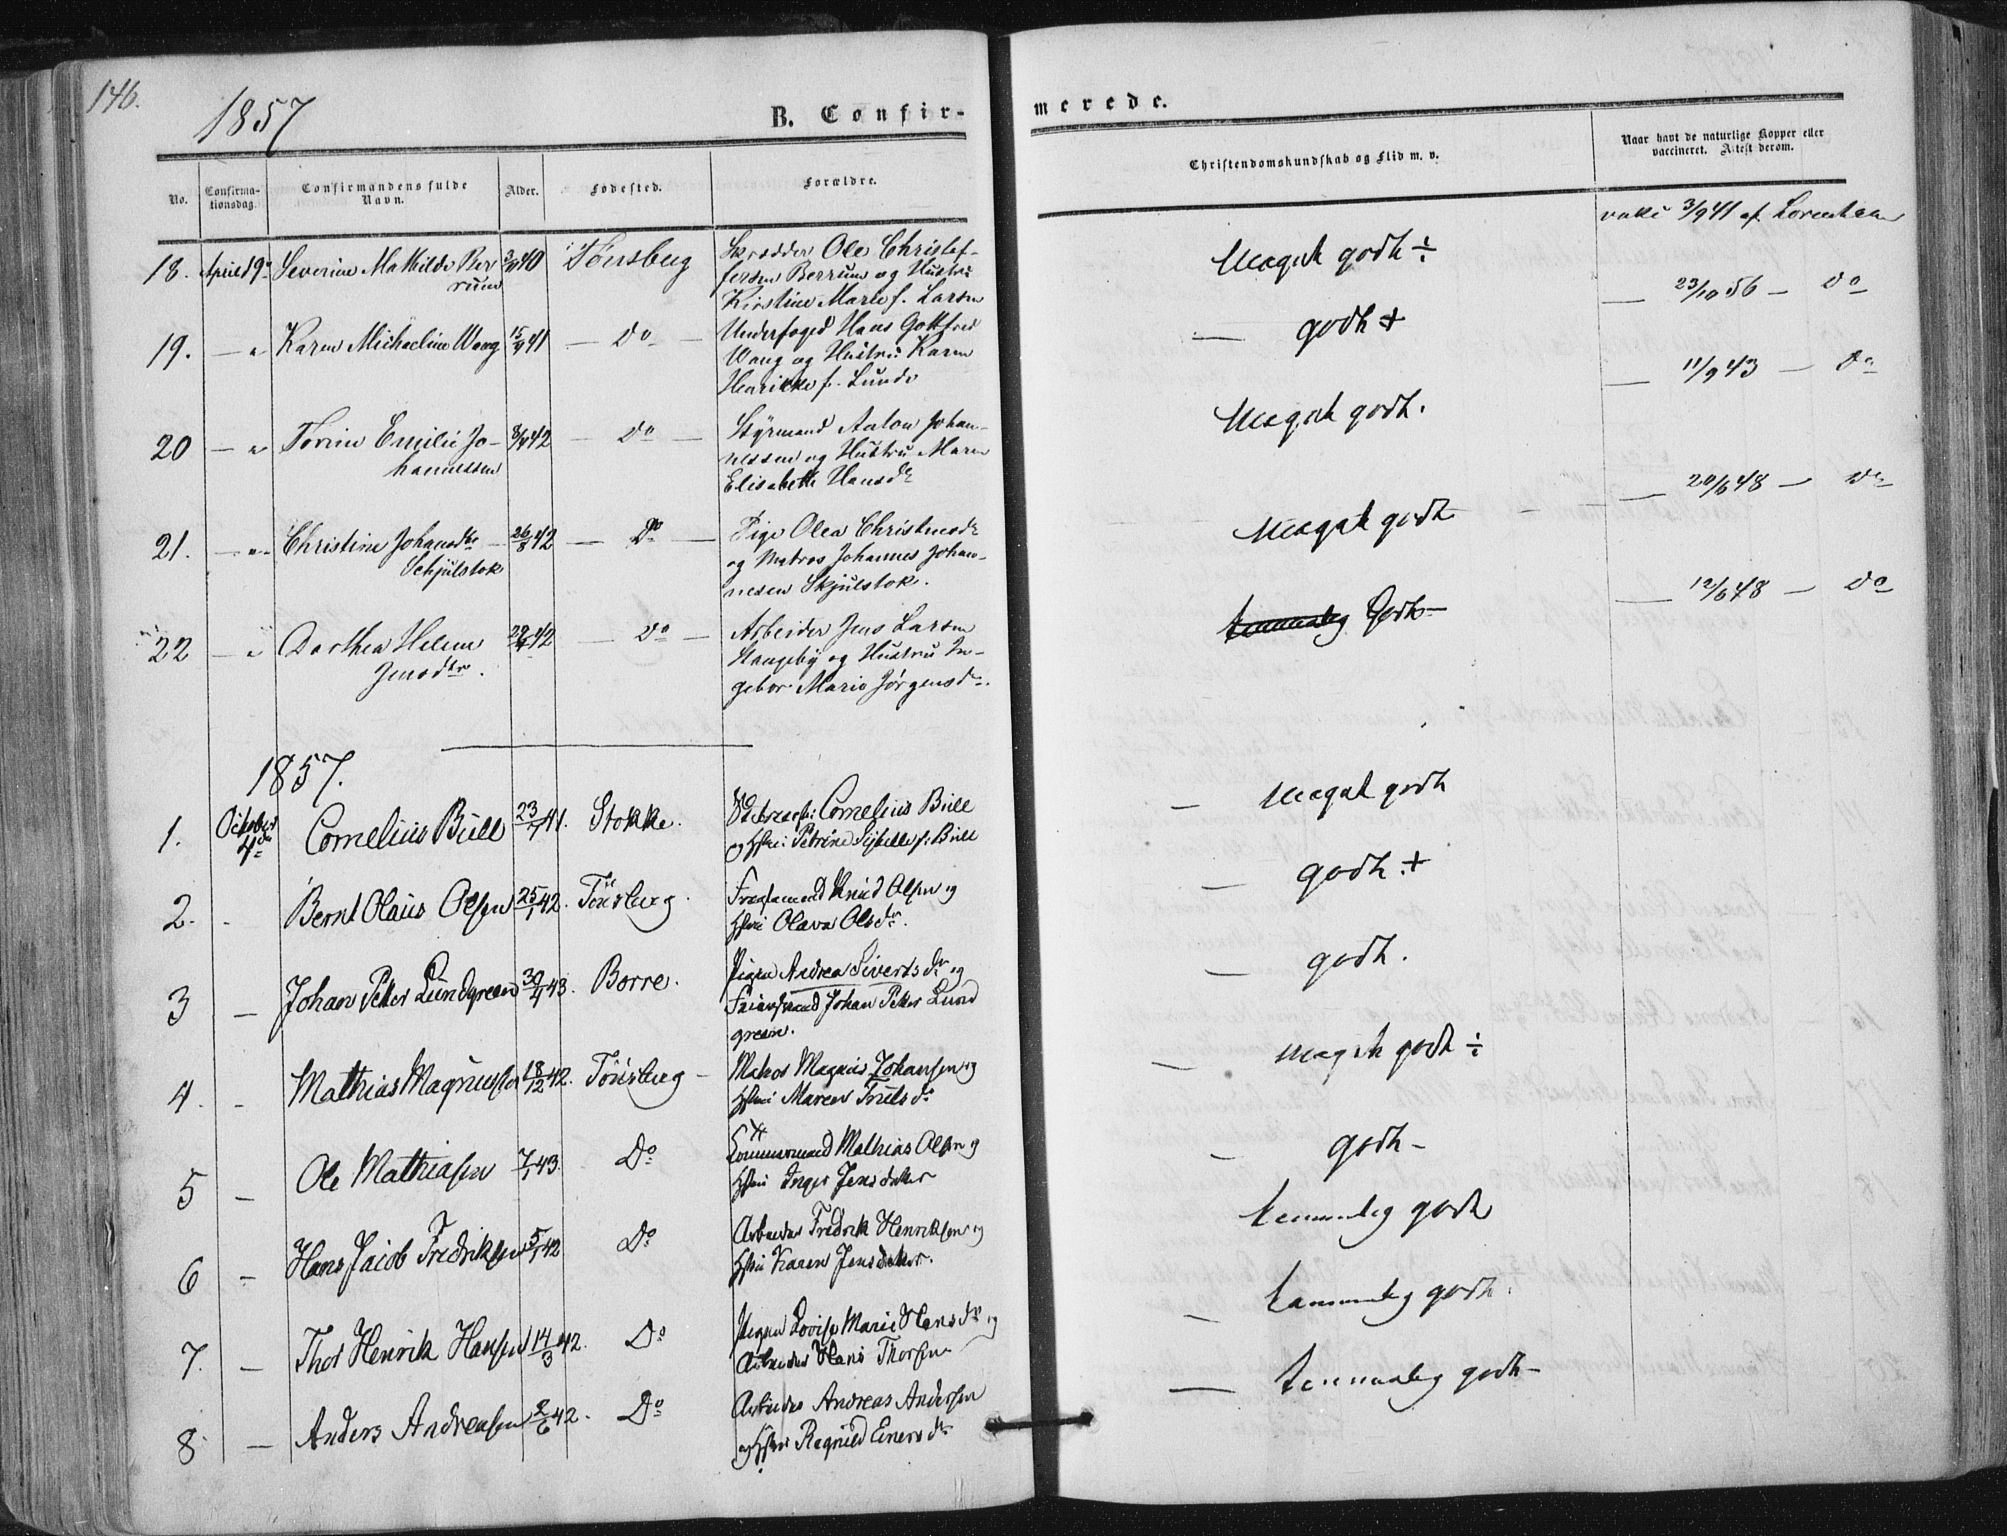 146.
1857
B. Confir-
merede.
No.
Confirma-
tionsdag.
Confirmandens fulde
Navn.
Alder.
Fødested.
Forældre.
Christendomskundskab og Flid m. v.
Naar havt de naturlige Kopper eller
vaccineret. Attest derom.
18. April 19 Severine Mathilde Ber
rum
40 Tönsberg
Skrædder Ole Christof-
fersen Berrum og Hustru
Kirstine Marie f. Larsen
Meget godt ÷
vakc 3/9 41 af Lorentzen
19. — " Karen Michaeline Wang 15/4 41 — Do —
Underfoged Hans Gottfred
Wang og Hustru Karen
Henrikke f. Lunde
— godt +
— 23/10 56 — Do
20 — " Torine Emilie Jo-
hannessen
3/4 42 — Do —
Styrmand Anton Johan-
nessen og Hustru Maren
Elisabeth Hansdr
Meget godt.
— 11/9 43 — Do
21. — " Christine Johansdtr
Schjulstok
26/8 42 — Do —
Pige Olea Christensdr
og Matros Johannes Johan-
nesen Skjulstok.
Meget godt
— 20/6 48 — Do
22 — " Dorthea Helene
Jensdtr.
42 — Do —
Arbeider Jens Larsen
Stangeby og Hustru In-
gebor Marie Jørgensdr.
temmelig Godt
— 12/6 48 — Do
1857.
1. October 4de Cornelius Bull 23/7 41. Stokke.
Cornelius Bull
og Hstru: Petrine Sybille f: Bull
— Meget godt
2. - Bernt Olaus Olsen 25/1 42. Tönsberg.
Knud Olsen og
Hstru Olava Olsdr.
— godt. +
3 — Johan Petter Lundgreen 30/4 43. Borre.
Pigen Andrea Sivertsdr og
Johan Petter Lund
green.
— godt.
4. - Mathias Magnussen 18/2 42. Tönsberg —
Matros Magnus Johansen og
Hstru Maren Trulsdr
— Meget godt ÷
5 — Ole Mathiasen 7/1 43. Do
Mathias Olsen og
Hstru Inger Jensdatter
— godt —
6 — Hans Jacob Fredriksen 5/1 42 Do
Arbeider Fredrik Henriksen og
Hstru Karen Jensdatter.
temmelig godt
7. — Thor Henrik Hansen 14/3 42. Do
Pigen Lovise Marie Hansdr og
Arbeider Hans Thorsen
— temmelig godt.
8 — Anders Andreasen 2/6 42. Do
Arbeider Andreas Andersen
og Hstru Ragnild Einersdr
— temmelig godt —